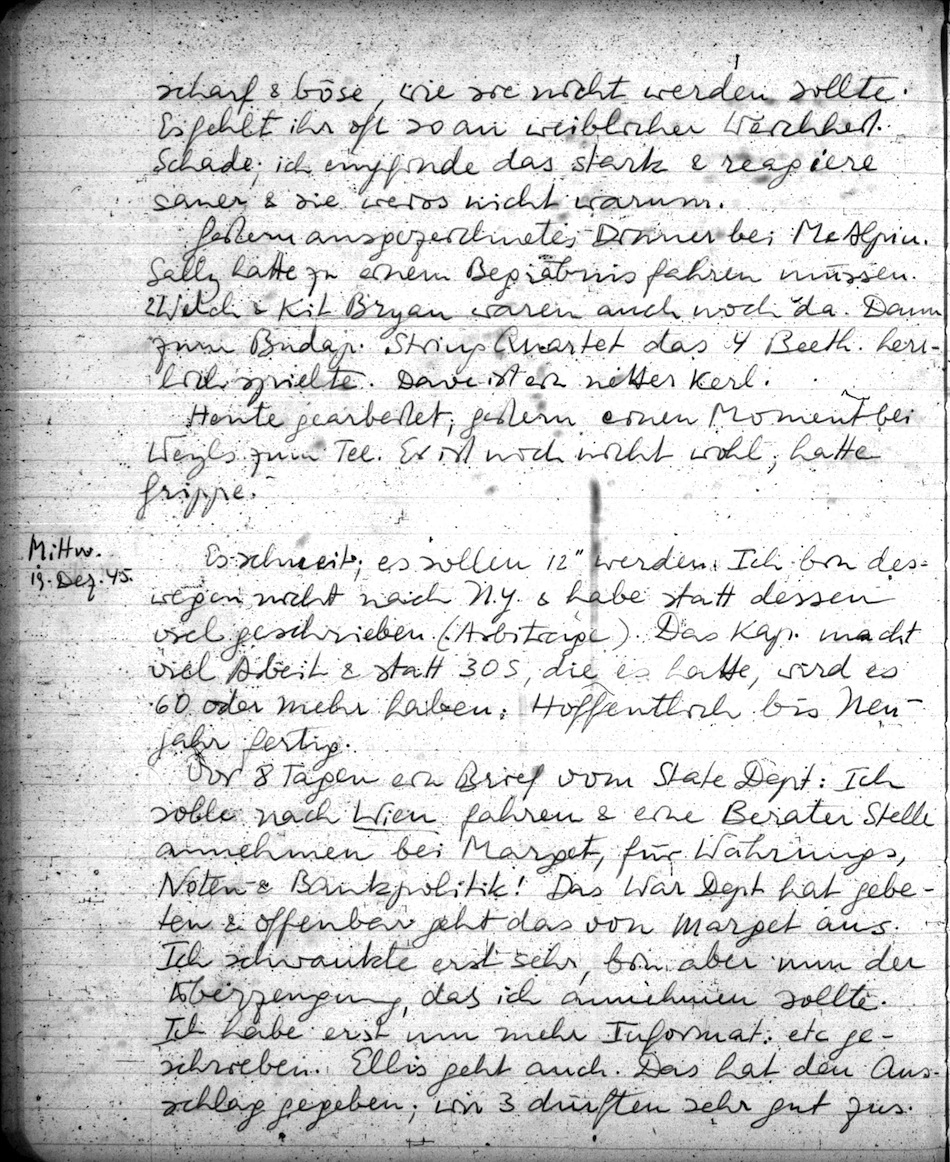 scharf & böse, wie sie nicht werden sollte.
Es fehlt ihr oft so an weiblicher Weichheit.
Schade; ich empfinde das stark & reagiere
sauer & sie weiss nicht warum.
Gestern ausgezeichnetes Dinner bei McAlpin.
Sally hatte zu einem Begräbnis fahren müssen.
Welch & Kit Bryan waren auch noch da. Dann
zum Budap. String Quartet das 4 Beeth. herr-
lich spielte. Dave ist ein netter Kerl.
Heute gearbeitet; gestern einen Moment bei
Weyls zum Tee. Er ist noch nicht wohl; hatte
Grippe.
Mittw.
19. Dez. 45.
Es schneit; es sollen 12" werden. Ich bin des-
wegen nicht nach N.Y. & habe statt dessen
viel geschrieben (Arbitrage). Das Kap. macht
viel Arbeit & statt 30 S, die es hatte, wird es
60 oder mehr haben. Hoffentlich bis Neu-
jahr fertig.
Vor 8 Tagen ein Brief vom State Dept: Ich
solle nach Wien fahren & eine Berater Stelle
annehmen bei Marget, für Währungs,
Noten & Bankpolitik! Das War Dept hat gebe-
ten & offenbar geht das von Marget aus.
Ich schwankte erst sehr, bin aber nun der
Überzeugung, das ich annehmen sollte.
Ich habe erst um mehr Informat. etc ge-
schrieben. Ellis geht auch. Das hat den Aus-
schlag gegeben; wir 3 dürften sehr gut zus.